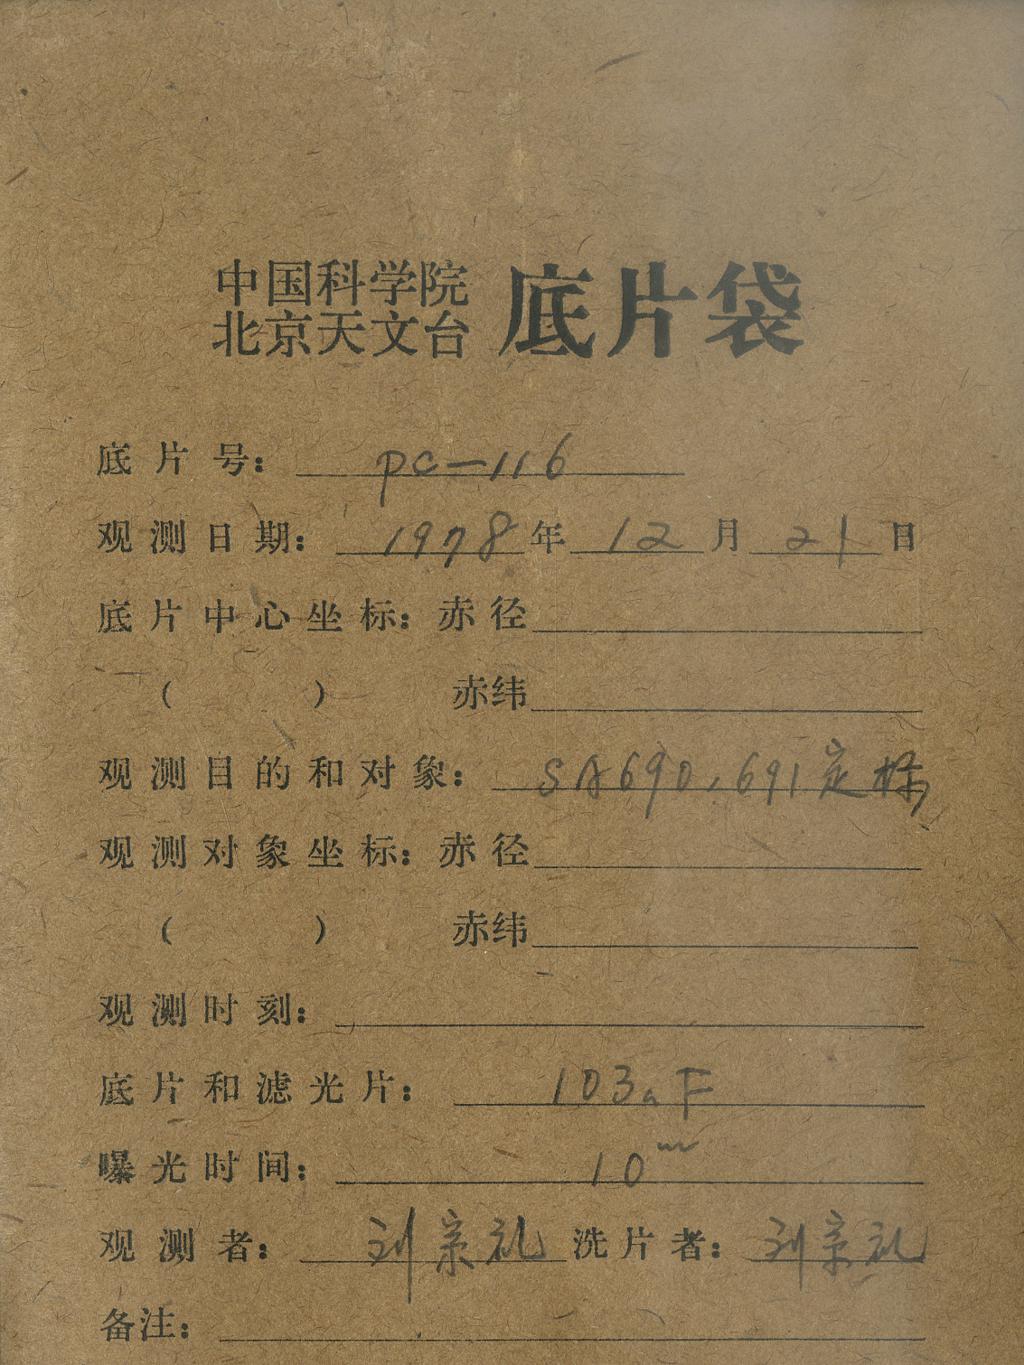 中国科学院
北京天文台 底片袋
底片号： pc-116
观测日期： 1978年12月21日
底片中心坐标：赤径
（ ） 赤纬
观测目的和对象： SA690，691定标
观测对象坐标：赤径
（ ） 赤纬
观测时刻：
底片和滤光片： 103aF
曝光时间： 10m
观测者： 刘宗礼 洗片者： 刘宗礼
备注：